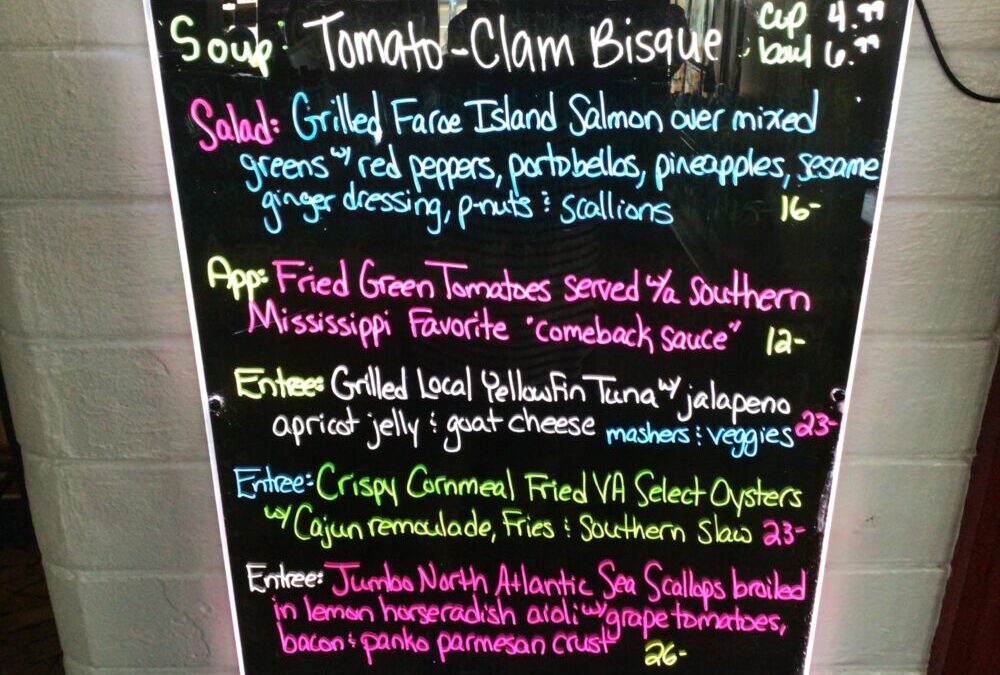 Soup: Tomato-Clam Bisque cup 4.99
bowl 6.99
Salad: Grilled Faroe Island Salmon over mixed
greens w/ red peppers, portobellos, pineapples, sesame
ginger dressing, p-nuts & scallions 16-
App: Fried Green Tomatoes served w/a Southern
Mississippi Favorite "comeback sauce" 12-
Entree: Grilled Local Yellowfin Tuna w/ jalapeno
apricot jelly & goat cheese mashers & veggies 23-
Entree: Crispy Cornmeal Fried VA Select Oysters
w/ Cajun remoulade, Fries & Southern Slaw 23-
Entree: Jumbo North Atlantic Sea Scallops broiled
in lemon horseradish aioli w/ grape tomatoes,
bacon & panko parmesan crust 26-